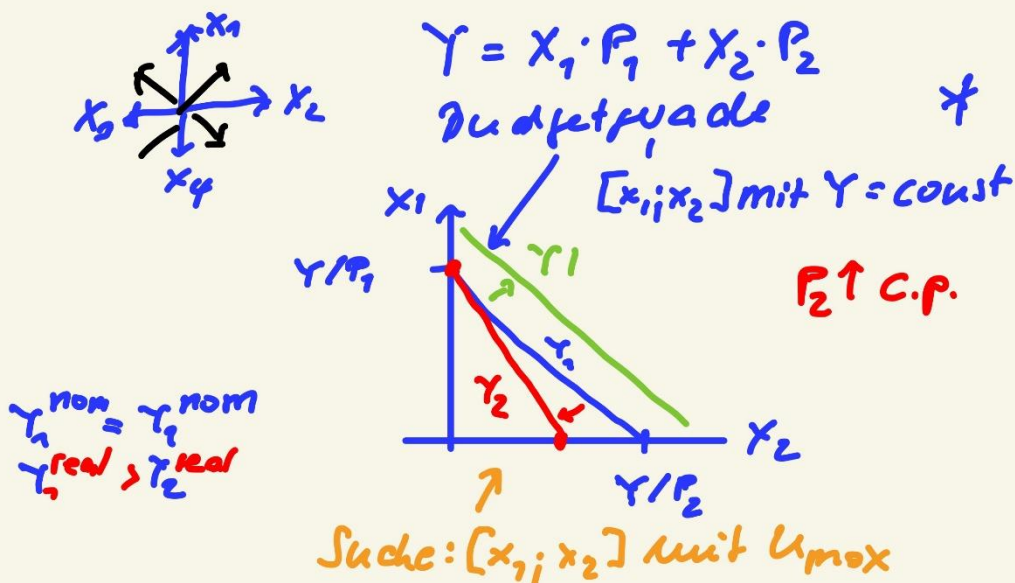 X₁
X₂
X₃
X₄
Y = X₁ · P₁ + X₂ · P₂
Budgetgerade
*
[x₁; x₂] mit Y = const
X1
Y/P₁
Y↑
P₂ ↑ c.p.
Y₁
Y₂
X₂
Y/P₂
Y₁ⁿᵒᵐ = Y₂ⁿᵒᵐ
Y₁ʳᵉᵃˡ > Y₂ʳᵉᵃˡ
Suche: [x₁; x₂] mit Umax